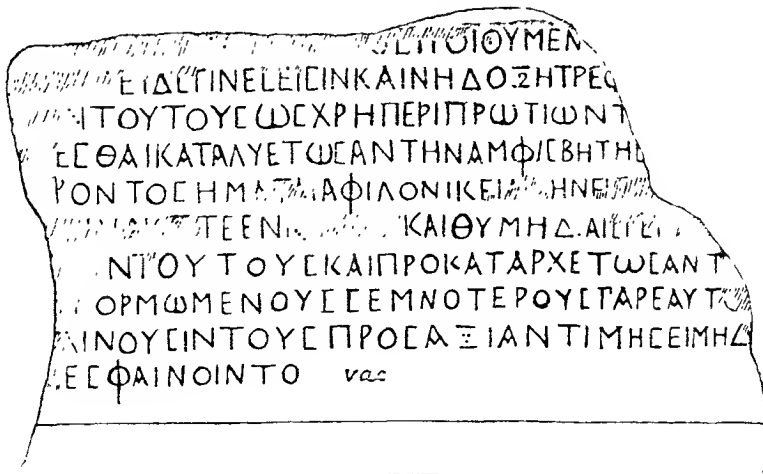 ΠΟΙΟΥΜΕΝ
ΕΙΔΕΤΙΝΕϹΕΙϹΙΝΚΑΙΝΗΔΟΞΗΤΡΕΦ
ΙΤΟΥΤΟΥϹωϹΧΡΗΠΕΡΙΠΡωΤΙωΝΤ
ΕϹΘΑΙΚΑΤΑΛΥΕΤωϹΑΝΤΗΝΑΜΦΙϹΒΗΤΗ
ΡΟΝΤΟϹΗΜΑ ΑΦΙΛΟΝΙΚΕΙΑ ΗΝΕΙ
ΤΕΕΝ ΚΑΙΘΥΜΗΔ ΑΙ
ΝΤΟΥΤΟΥϹΚΑΙΠΡΟΚΑΤΑΡΧΕΤωϹΑΝΤ
ΟΡΜωΜΕΝΟΥϹϹΕΜΝΟΤΕΡΟΥϹΓΑΡΕΑΥΤ
ΙΝΟΥϹΙΝΤΟΥϹΠΡΟϹΑΞΙΑΝΤΙΜΗϹΕΙΜΗΔ
ΕϹΦΑΙΝΟΙΝΤΟ vac